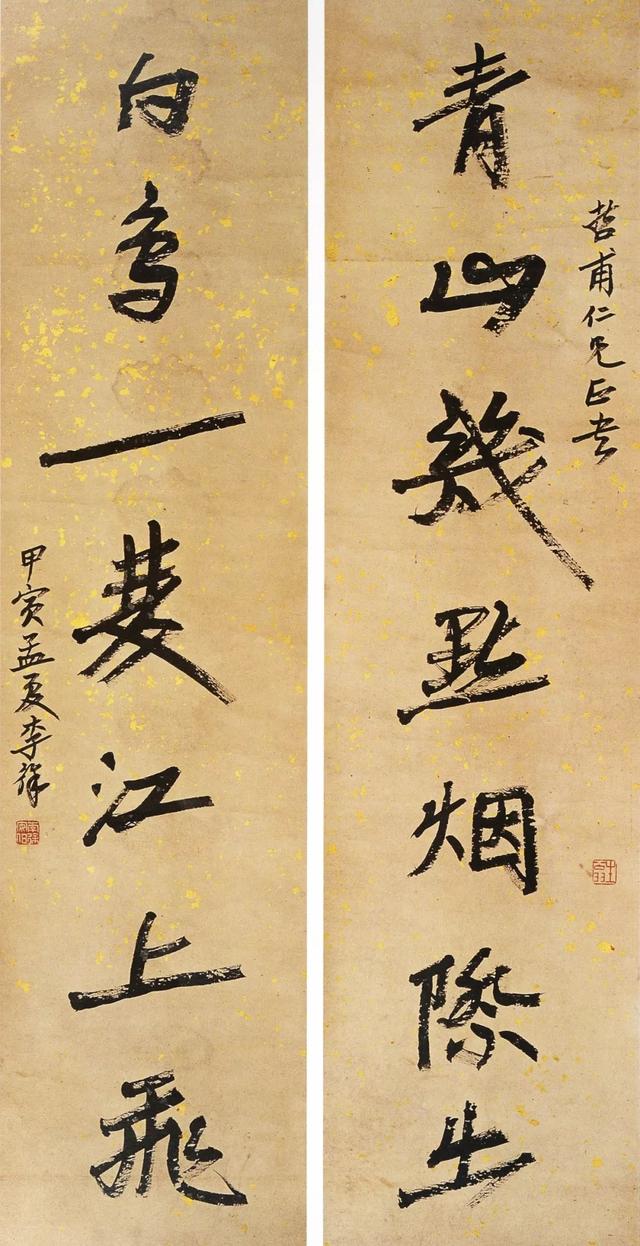 青山幾點烟際出
哲甫仁兄正書
白鳥一雙江上飛
甲寅孟夏李祥